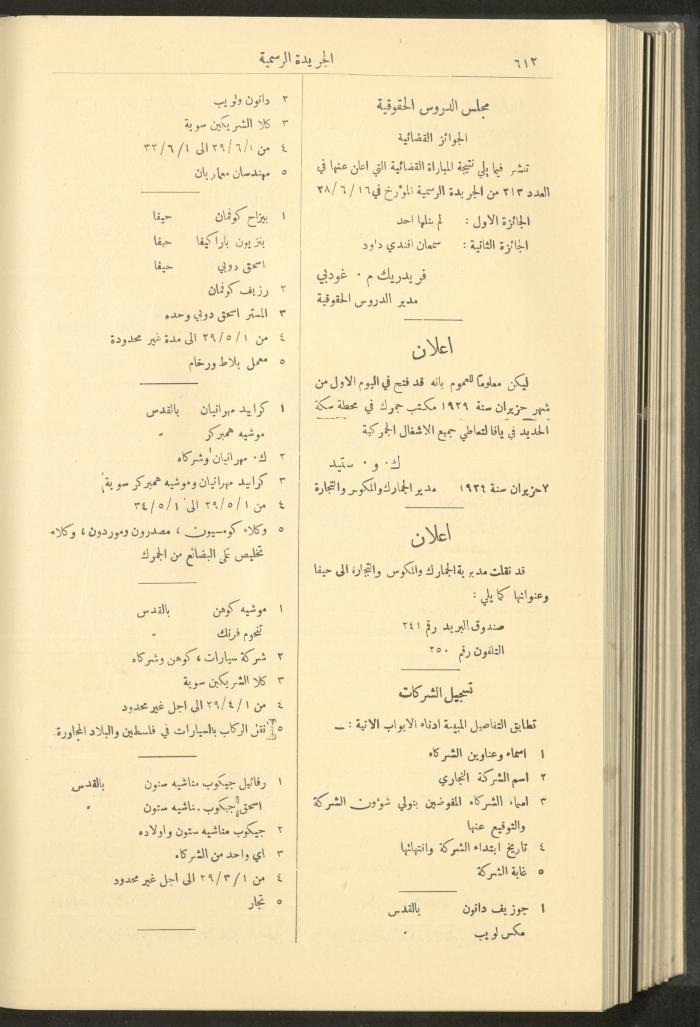 ٦١٢
الجريدة الرسمية
مجلس الدروس الحقوقية
الجوائز القضائية
تنشر فيما يلي نتيجة المباراة القضائية التي اعلن عنها في
العدد ٢١٣ من الجريدة الرسمية المؤرخ في ١٦/٦/٢٨
الجائزة الاولى : لم ينلها احد
الجائزة الثانية : سمعان افندي داود
فريدريك م . غودبي
مدير الدروس الحقوقية
اعلان
ليكن معلوماً للعموم بانه قد فتح في اليوم الاول من
شهر حزيران سنة ١٩٢٩ مكتب جمرك في محطة سكة
الحديد في يافا لتعاطي جميع الاشغال الجمركية
ك . و . ستيد
٧ حزيران سنة ١٩٢٩ مدير الجمارك والمكوس والتجارة
اعلان
قد نقلت مديرية الجمارك والمكوس والتجارة الى حيفا
وعنوانها كما يلي :
صندوق البريد رقم ٢٤١
التلفون رقم ٢٥٠
تسجيل الشركات
تطابق التفاصيل المبينة ادناه الابواب الاتية : ــ
١ اسماء وعناوين الشركاء
٢ اسم الشركة التجاري
٣ اسماء الشركاء المفوضين بتولي شؤون الشركة
والتوقيع عنها
٤ تاريخ ابتداء الشركة وانتهائها
٥ غاية الشركة
١ جوزيف دانون بالقدس
مكس لويب "
٢ دانون ولويب
٣ كلا الشريكين سوية
٤ من ٢٩/٦/١ الى ٣٢/٦/١
٥ مهندسان معماريان
١ بيزاح كوفمان حيفا
بنزيون باراكيفا حيفا
اسحق دوبي حيفا
٢ رزيف كوفمان
٣ المستر اسحق دوبي وحده
٤ من ٢٩/٥/١ الى مدة غير محدودة
٥ معمل بلاط ورخام
١ كرابيد مهرانيان بالقدس
موشيه همبركر "
٢ ك . مهرانيان وشركاه
٣ كرابيد مهرانيان وموشيه همبركر سوية
٤ من ٢٩/٥/١ الى ٣٤/٥/١
٥ وكلاء كومسيون ، مصدرون وموردون ، وكلاء
تخليص على البضائع من الجمرك
١ موشيه كوهن بالقدس
تنحوم فرنك "
٢ شركة سيارات ، كوهن وشركاه
٣ كلا الشريكين سوية
٤ من ٢٩/٤/١ الى اجل غير محدود
٥ نقل الركاب بالسيارات في فلسطين والبلاد المجاورة
١ رفائيل جيكوب مناشيه ستون بالقدس
اسحق جيكوب مناشيه ستون "
٢ جيكوب مناشيه ستون واولاده
٣ اي واحد من الشركاء
٤ من ٢٩/٣/١ الى اجل غير محدود
٥ تجار